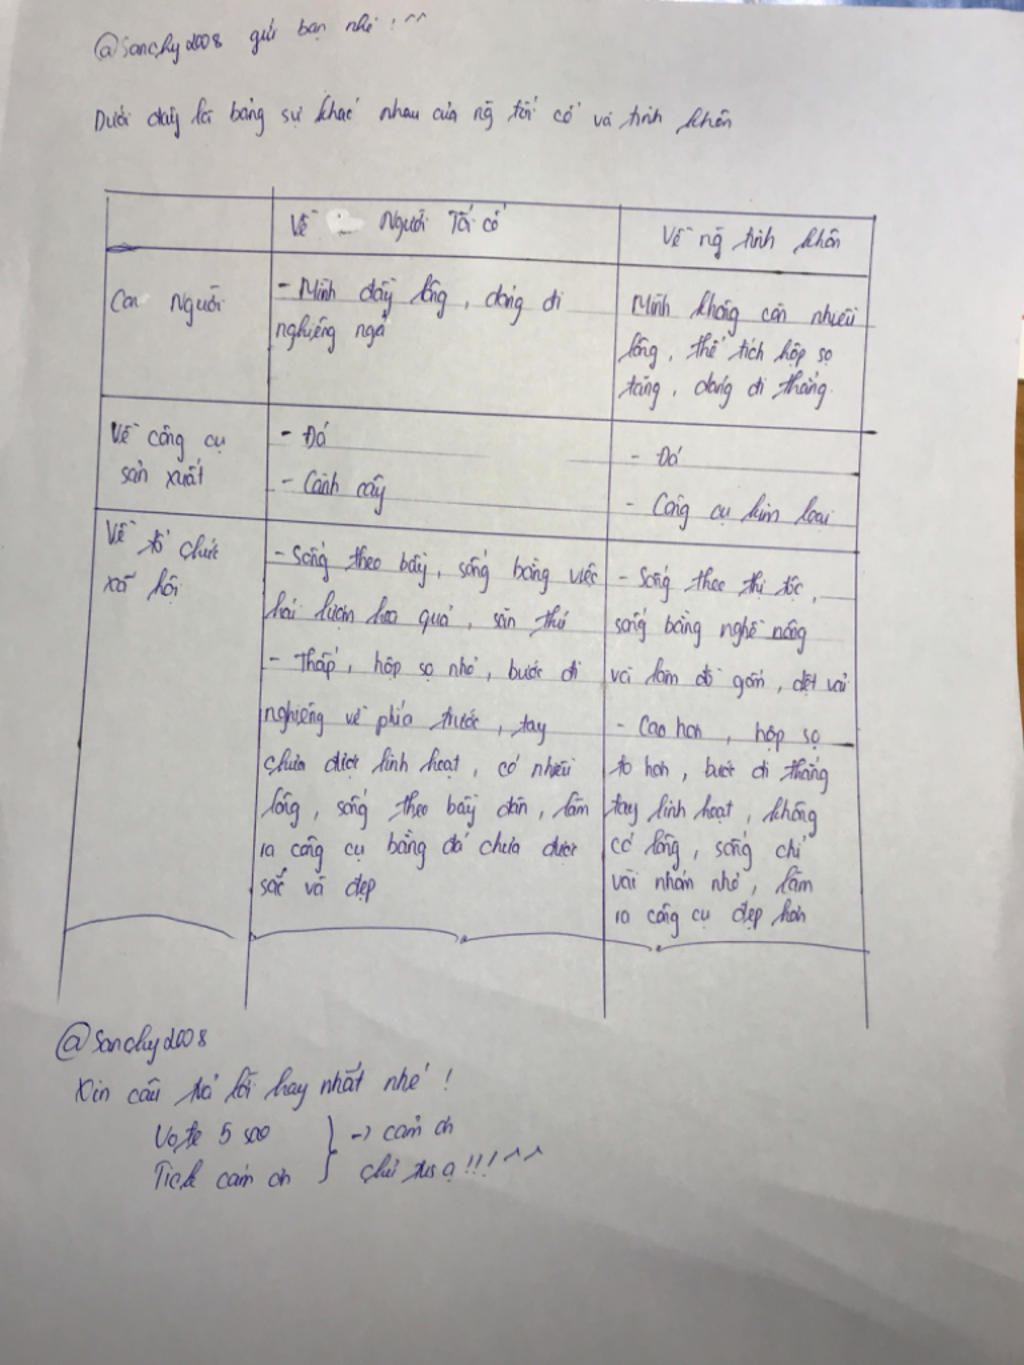 @Sanchy2008 gửi bạn nhé ! ^^
Dưới đây là bảng sự khác nhau của ng tối cổ và tinh khôn
Về Người Tối cổ
Về ng tinh khôn
Con Người
- Mình đầy lông, dáng đi
nghiêng ngả
Mình không còn nhiều
lông, thể tích hộp sọ
tăng, dáng đi thẳng.
Về công cụ
sản xuất
- Đá
- Cành cây
- Đá
- Công cụ kim loại
Về tổ chức
xã hội
- Sống theo bầy, sống bằng việc
hái lượm hoa quả, săn thú
- Thấp, hộp sọ nhỏ, bước đi
nghiêng về phía trước, tay
chưa được linh hoạt, có nhiều
lông, sống theo bầy đàn, làm
ra công cụ bằng đá chưa được
sắc và đẹp
- Sống theo thị tộc,
sống bằng nghề nông
và làm đồ gốm, dệt vải
- Cao hơn, hộp sọ
to hơn, bước đi thẳng
tay linh hoạt, không
có lông, sống chỉ
vài nhóm nhỏ, làm
ra công cụ đẹp hơn
@Sanchy2008
Xin câu trả lời hay nhất nhé !
Vote 5 sao
Tick cảm ơn
-> cảm ơn
chị ạ!!! ^^